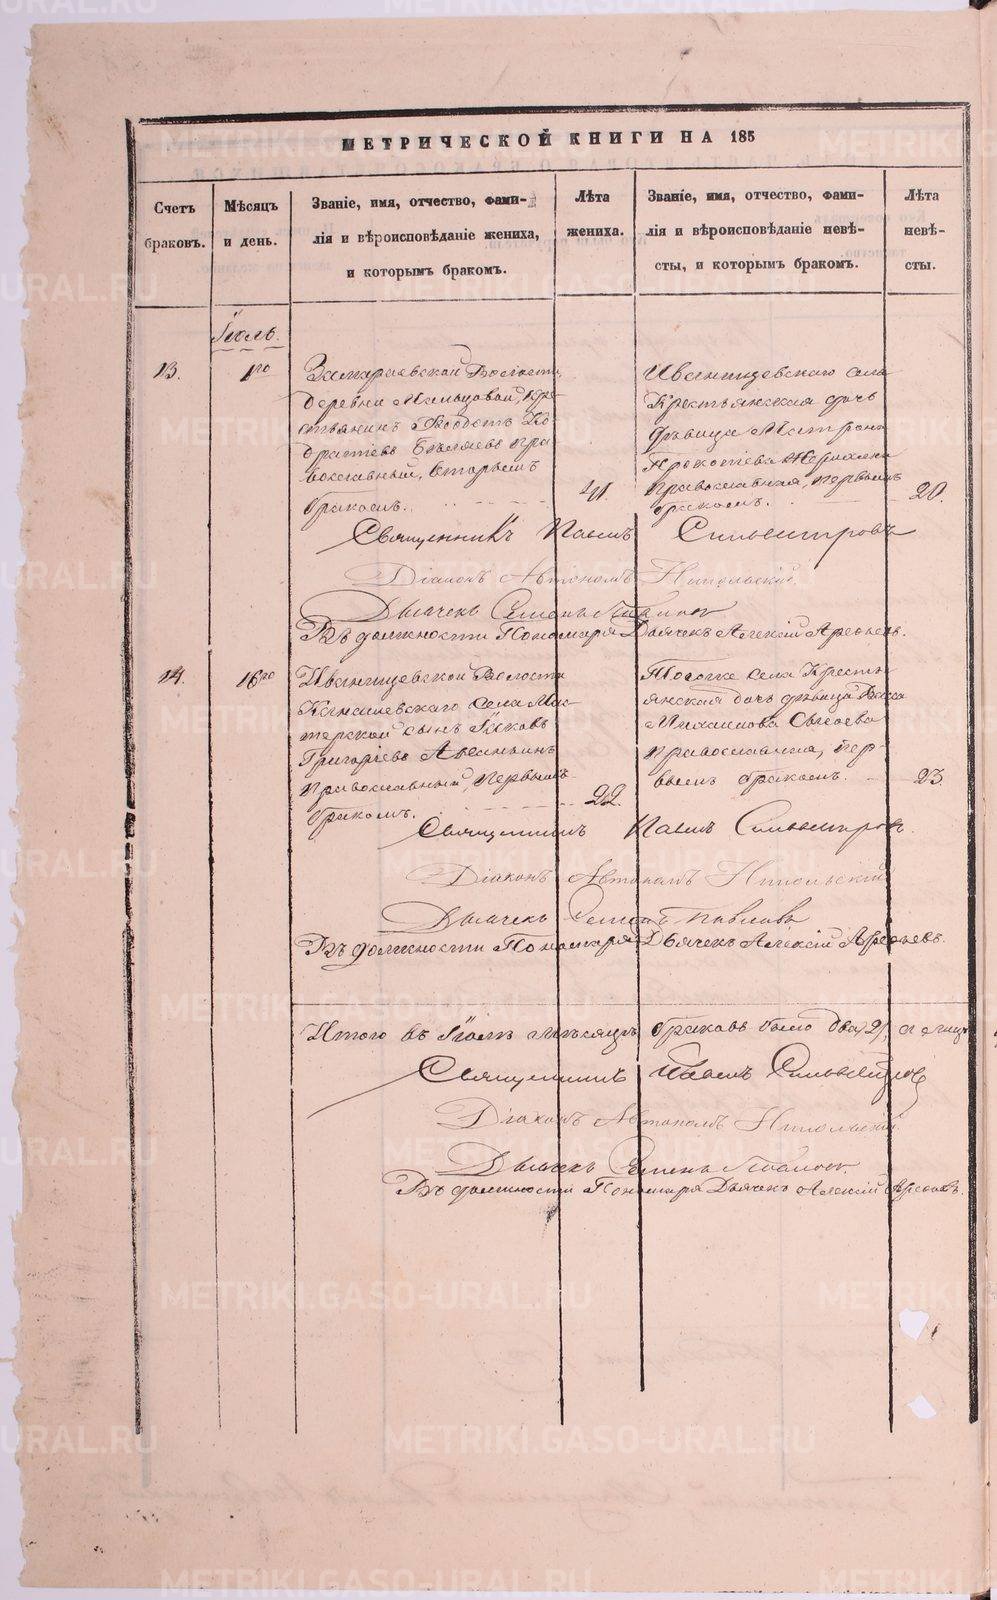 МЕТРИЧЕСКОЙ КНИГИ НА 185
Счетъ
браковъ.
Мѣсяцъ
и день.
Званіе, имя, отчество, фами-
лія и вѣроисповѣданіе жениха,
и которымъ бракомъ.
Лѣта
жениха.
Званіе, имя, отчество, фами-
лія и вѣроисповѣданіе невѣ-
сты, и которымъ бракомъ.
Лѣта
невѣ-
сты.
Іюль.
13.
1го
деревни Мальцовой, кре-
стьянинъ
Бѣляевъ пра
вославный, вторымъ
бракомъ.
41.
Иванищевскаго села
Крестьянская дочь
дѣвица Матрона
Прокопіева
православная, первымъ
бракомъ.
20.
Священникъ Павелъ Сильвестровъ
Діаконъ Автономъ Никольскій.
Дьячекъ Семенъ
Въ должности Пономаря Дьячекъ Алексій Арефьевъ.
14.
16го
Иванищевской Волости
села Мас-
терской сынъ Іаковъ
Григоріевъ
Православный, первымъ
бракомъ.
22.
Тогоже села Кресть
янская дочь дѣвица Васса
Михаилова
православная, пер-
вымъ бракомъ.
23.
Священникъ Павелъ Сильвестровъ.
Діаконъ Автономъ Никольскій
Дьячекъ Семенъ
Въ должности Пономаря Дьячекъ Алексій Арефьевъ.
Итого въ Іюлѣ мѣсяцѣ браковъ было два /2/, а лицъ
Священникъ Павелъ Сильвестровъ
Діаконъ Автономъ Никольскій.
Дьячекъ Семенъ
Въ должности Пономаря Дьячекъ Алексій Арефьевъ.
METRIKI.GASO-URAL.RU